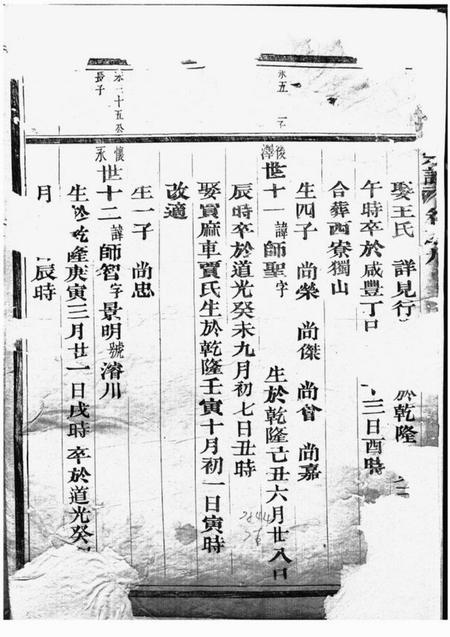 娶王氏 詳見行 於乾隆
午時卒於咸豐丁 三日酉時
合葬西寮獨山
生四子 尚榮 尚傑 尚曾 尚嘉
永五
後澤世十一諱師聖字 生於乾隆己丑六月廿八
辰時卒於道光癸未九月初七日丑時
娶賈麻車賈氏生於乾隆壬寅十月初一日寅時
改適
生一子 尚忠
永二十五公
長子
懷永世十二諱師智字景明號濬川
生於乾隆庚寅三月廿一日戌時卒於道光癸
月 辰時